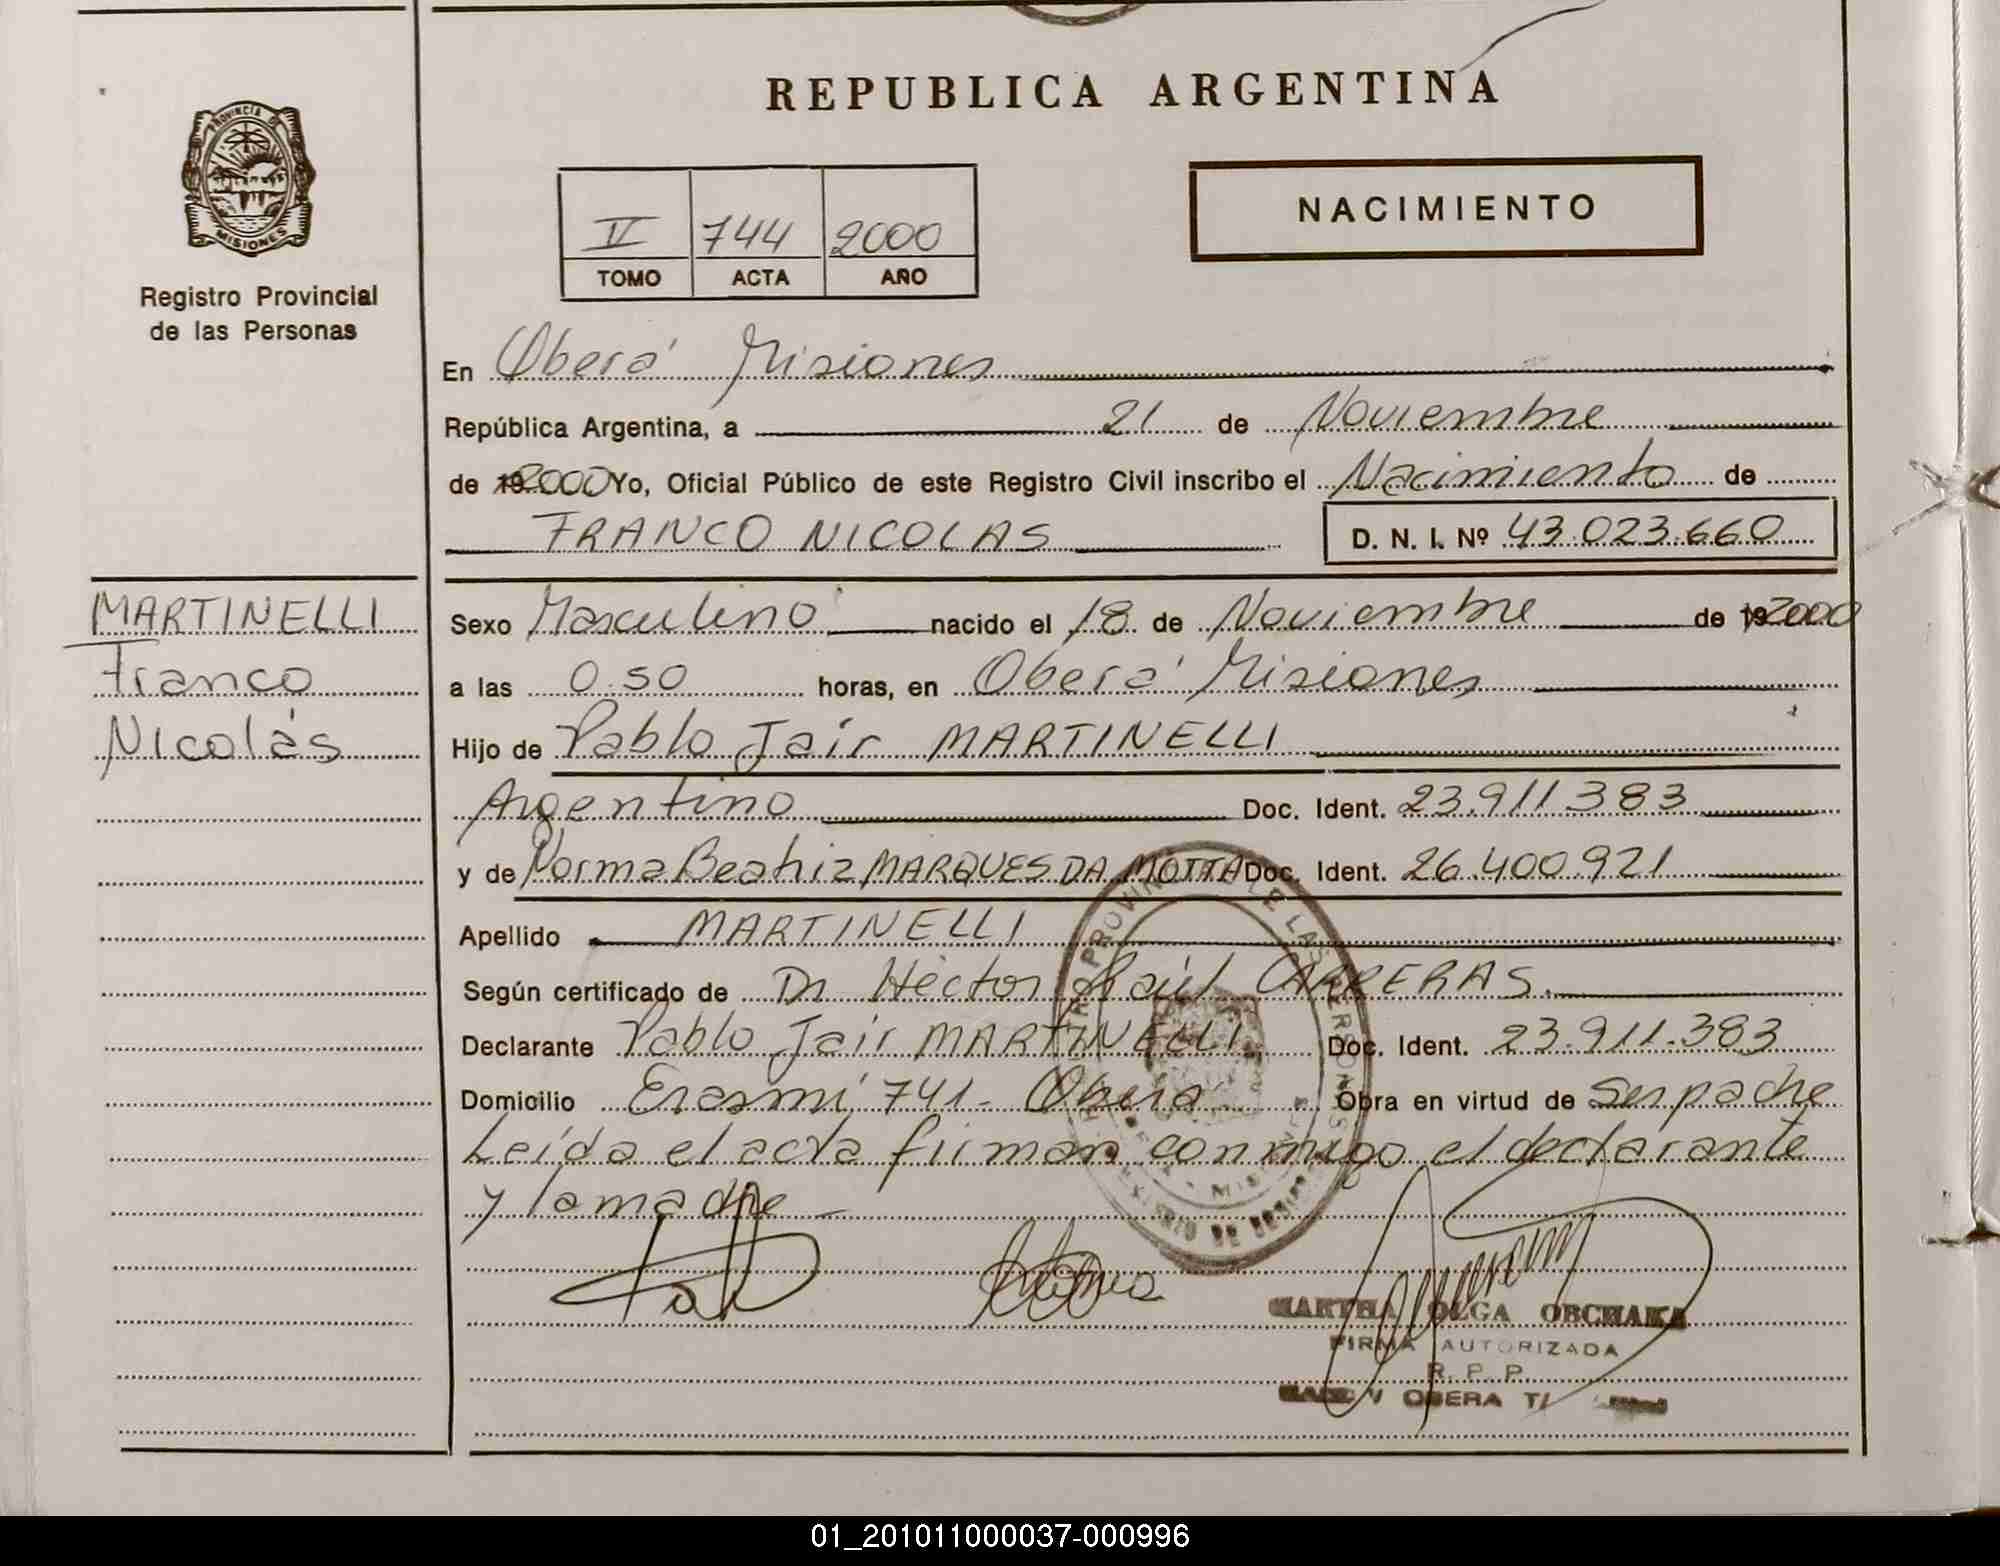 REPUBLICA ARGENTINA
PROVINCIA DE
MISIONES
Registro Provincial
de las Personas
V 744 2000
TOMO ACTA AÑO
NACIMIENTO
En Oberá Misiones
República Argentina, a 21 de Noviembre
de 2000 Yo, Oficial Público de este Registro Civil inscribo el Nacimiento de
FRANCO NICOLAS D. N. I. Nº 43.023.660
MARTINELLI
Franco
Nicolás
Sexo Masculino nacido el 18 de Noviembre de 2000
a las 0.50 horas, en Oberá Misiones
Hijo de Pablo Jair MARTINELLI
Argentino Doc. Ident. 23.911.383
y de Norma Beatriz MARQUES DA MOTTA Doc. Ident. 26.400.921
Apellido MARTINELLI
Según certificado de Dr Héctor Raúl CARRERAS.
Declarante Pablo Jair MARTINELLI Doc. Ident. 23.911.383
Domicilio 741 - Oberá Obra en virtud de Ser padre
Leída el acta firman conmigo el declarante
y la madre -
MARTHA OLGA OBCHAKA
FIRMA AUTORIZADA
R. P. P.
OBERA
01_201011000037-000996